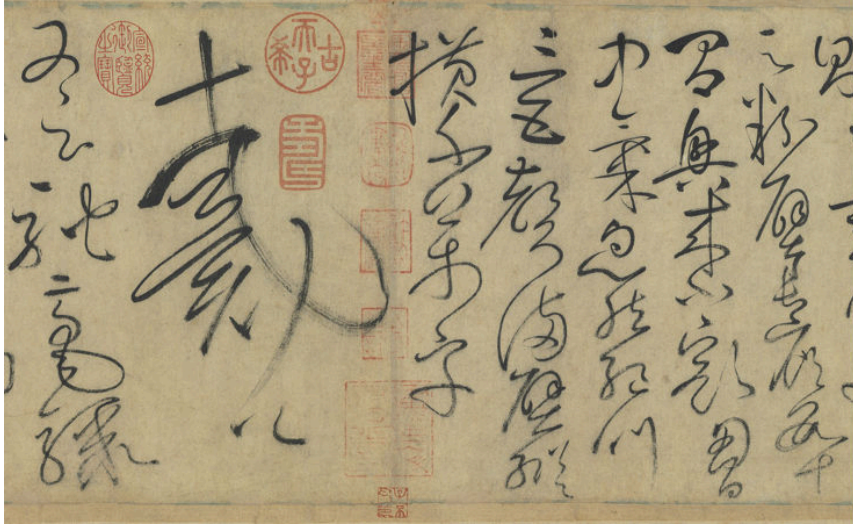 云粉壁長廊數十
間興來小豁胸
中氣忽然絕叫
三五聲滿壁縱
橫千萬字
古希天子
壽
戴公
宣統御覽之寶
又云馳毫驟